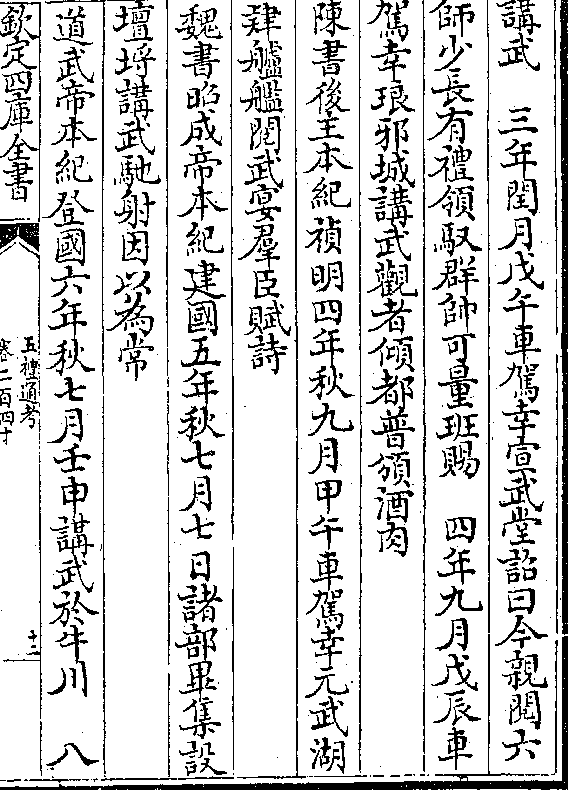 講武　三年閏月戊午車駕幸宣武堂詔曰今親閱六
師少長有禮領馭群帥可量班賜　四年九月戊辰車
駕幸琅邪城講武觀者傾都普頒酒肉
陳書後主本紀禎明四年秋九月甲午車駕幸元武湖
肄艫艦閱武宴羣臣賦詩
魏書昭成帝本紀建國五年秋七月七日諸部畢集設
壇埒講武馳射因以為常
道武帝本紀登國六年秋七月壬申講武於牛川　八
欽定四庫全書
五禮通考
卷二百四十
十二